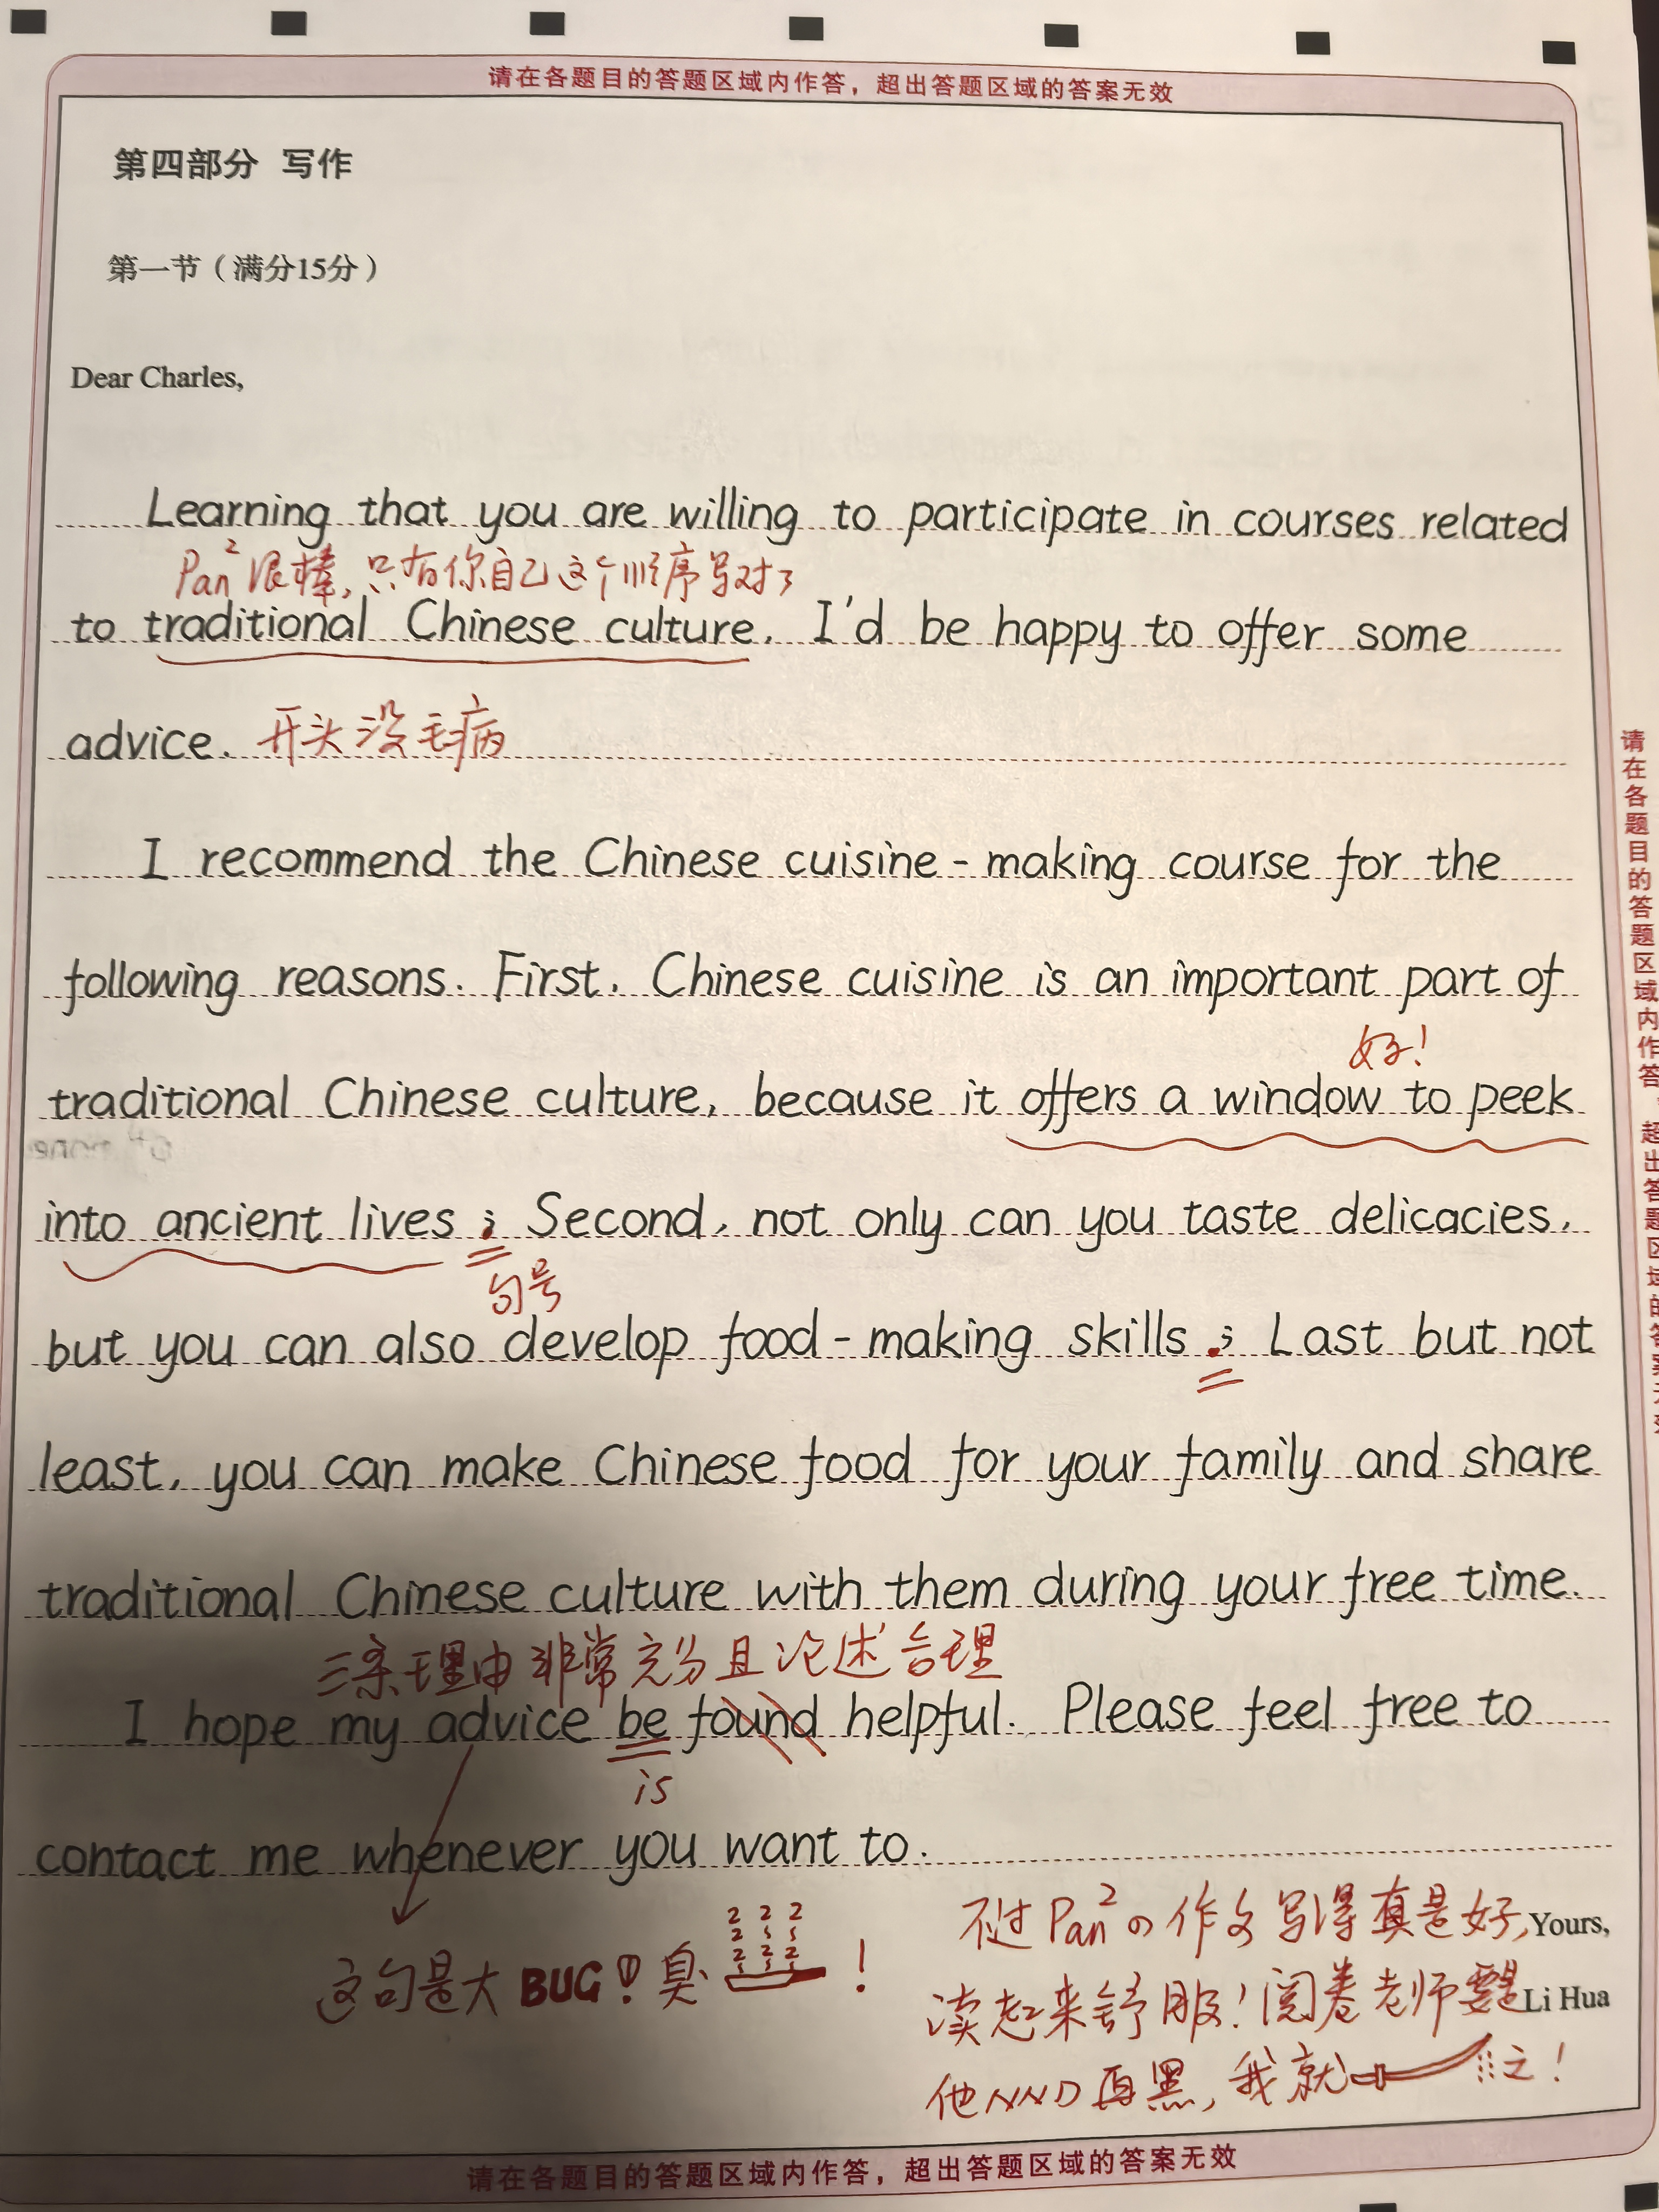 请在各题目的答题区域内作答，超出答题区域的答案无效
第四部分 写作
第一节（满分15分）
Dear Charles,
Learning that you are willing to participate in courses related
Pan² 很棒，只有你自己这个顺序写对了
to traditional Chinese culture, I'd be happy to offer some
advice. 开头没毛病
I recommend the Chinese cuisine-making course for the
following reasons. First, Chinese cuisine is an important part of
好！
traditional Chinese culture, because it offers a window to peek
into ancient lives; Second, not only can you taste delicacies,
句号
but you can also develop food-making skills; Last but not
least, you can make Chinese food for your family and share
traditional Chinese culture with them during your free time.
三条理由非常充分且论述合理
I hope my advice be found helpful. Please feel free to
is
contact me whenever you want to.
这句是大 BUG！臭
2 2 2
2 s s
2 2 2
s s s
！
不过 Pan² の 作文写得真是好，
Yours,
读起来舒服！阅卷老师要是
Li Hua
他NND再黑，我就 之！
请在各题目的答题区域内作答，超出答题区域的答案无效
请在各题目的答题区域内作答，超出答题区域的答案无效